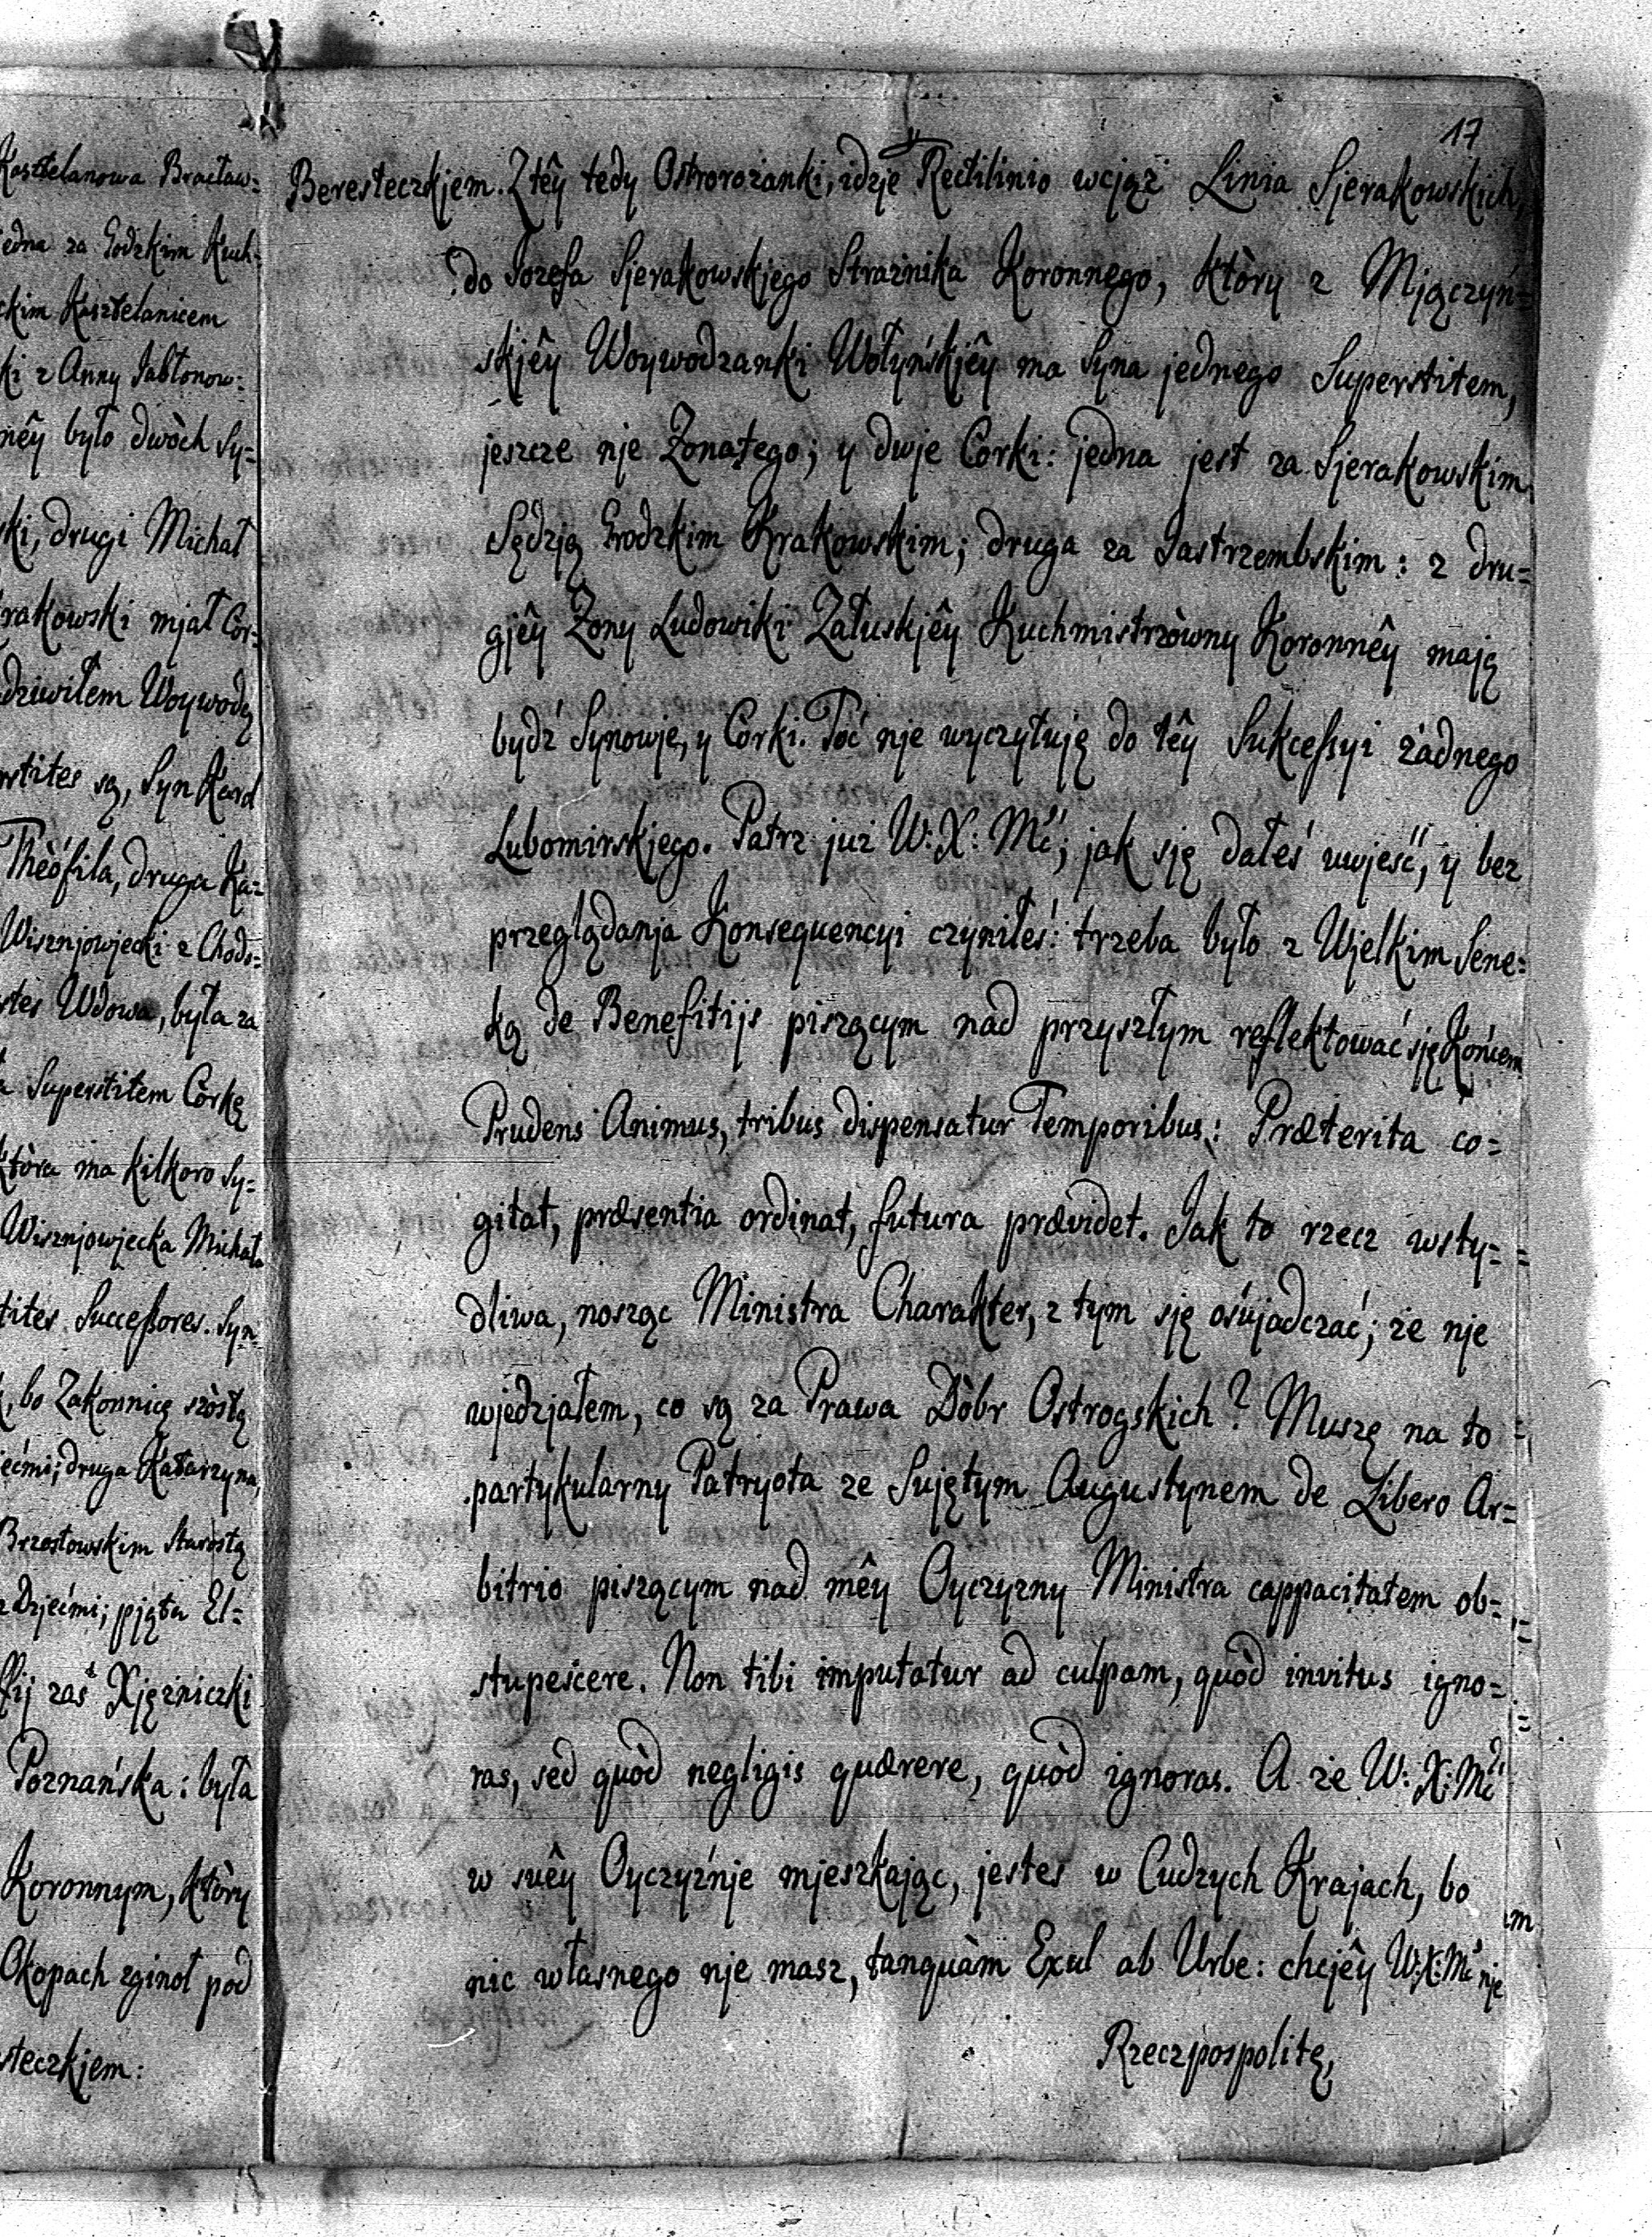 Kasztelanowa Bracław:
jedna za Grodzkim Kuch:
ckim Kasztelanicem
ki z Anny Jabłonow:
nêy było dwòch Sy=
ski, drugi Michał
rakowski mjał Còr:
dziwiłem Woywodą
rstites są, Syn Karol
Theòfila, druga Ka=
Wisznjowjecki z Chod=
stes Wdowa, była za
a Superstitem Còrkę
ktòra ma kilkoro Sy=
Wisznjowjecka Michała
tites Succeßores. Syn
bo Zakonnicę szòstą
ećmi; druga Katarzyna,
Brzostowskim Starostą
z Dzjećmi; pjąta El=
ßij zaś Xjężniczki
Poznańska: była
Koronnym, ktòry
Okopach zginoł pod
steczkjem:
17
Beresteczkjem. Z têy tedy Ostrorożanki, idzje Rectilinio wcjąż Linia Sjerakowskich,
do Jozefa Sjerakowskjego Strażnika Koronnego, ktòry z Mjączyń=
skjêy Woywodzanki Wołyńskjêy ma Syna jednego Superstitem,
jeszcze nje Żonatego; y dwje Corki: jedna jest za Sjerakowskim
Sędzją Grodzkim Krakowskim; druga za Jastrzembskim: z dru=
gjêy Żony Ludowiki Załuskjêy Kuchmistrzòwny Koronnêy mają
bydź Synowje, y Còrki. Toć nje wyczytuję do têy Sukceßyi żadnego
Lubomirskjego. Patrz już W: X: Mć; jak sję dałeś uwjeść, y bez
przeglądanja Konsequencyi czyniłeś: trzeba było z Wjelkim Sene=
ką de Benefitijs piszącym nad przyszłym reflektować sję Końcem
Prudens Animus, tribus dispensatur Temporibus: Præterita co=
gitat, præsentia ordinat, futura prævidet. Jak to rzecz wsty=
dliwa, nosząc Ministra Charakter, z tym sję ośwjadczać; że nje
wjedzjałem, co są za Prawa Dòbr Ostrogskich? Muszę na to
partykularny Patryota ze Swjętym Augustynem de Libero Ar=
bitrio piszącym nad mêy Oyczyzny Ministra cappacitatem ob=
stupescere. Non tibi imputatur ad culpam, quòd invitus igno=
ras, sed quòd negligis quærere, quòd ignoras. A że W: X: Mć
w swêy Oyczyźnje mjeszkając, jestes w Cudzych Krajach, bo
nic własnego nje masz, tanquàm Exul ab Urbe: chcjêy W: X: Mć nje
Rzeczpospolitę,